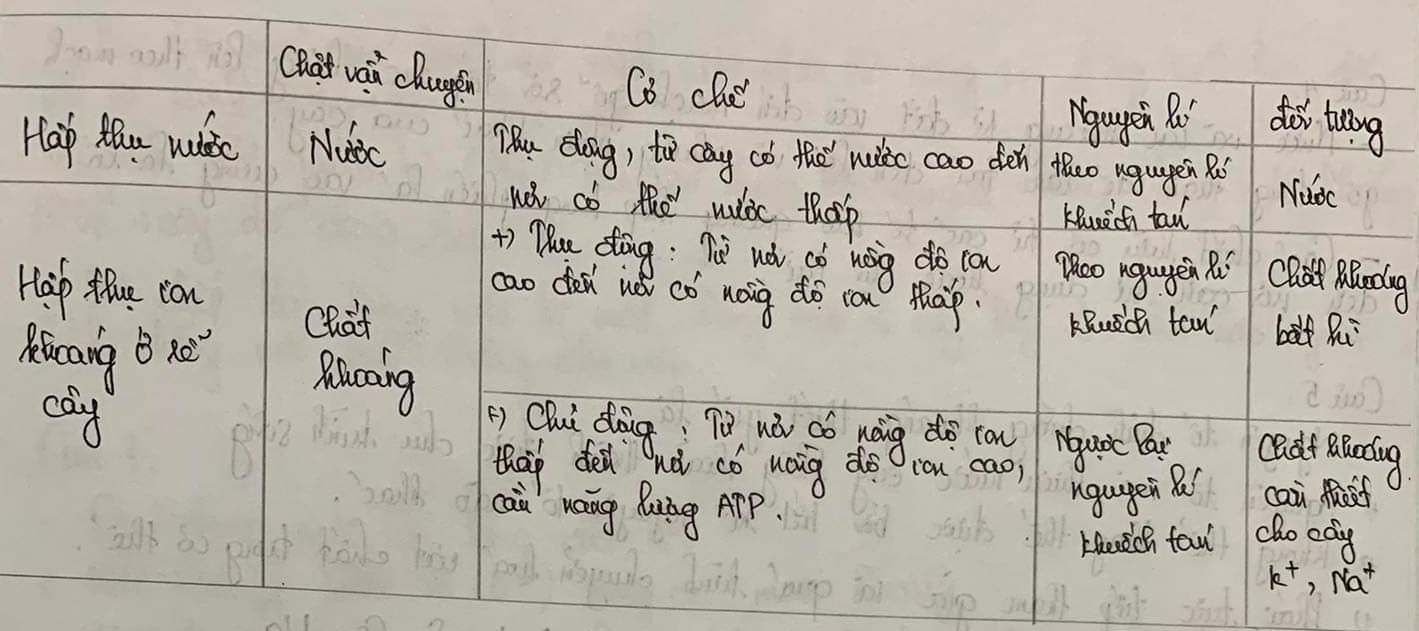 Chất vận chuyển
Cơ chế
Nguyên lí
đối tượng
Hấp thụ nước
Nước
Thụ động, từ cây có thế nước cao đến
nơi có thế nước thấp
theo nguyên lí
khuếch tán
Nước
Hấp thụ ion
khoáng ở rễ
cây
Chất
khoáng
+) Thụ động: Từ nơi có nồng độ ion
cao đến nơi có nồng độ ion thấp.
Theo nguyên lí
khuếch tán
Chất khoáng
bất kì
+) Chủ động: Từ nơi có nồng độ ion
thấp đến nơi có nồng độ ion cao,
cần năng lượng ATP.
Ngược lại
nguyên lí
khuếch tán
Chất khoáng
cần thiết
cho cây
K+, Na+